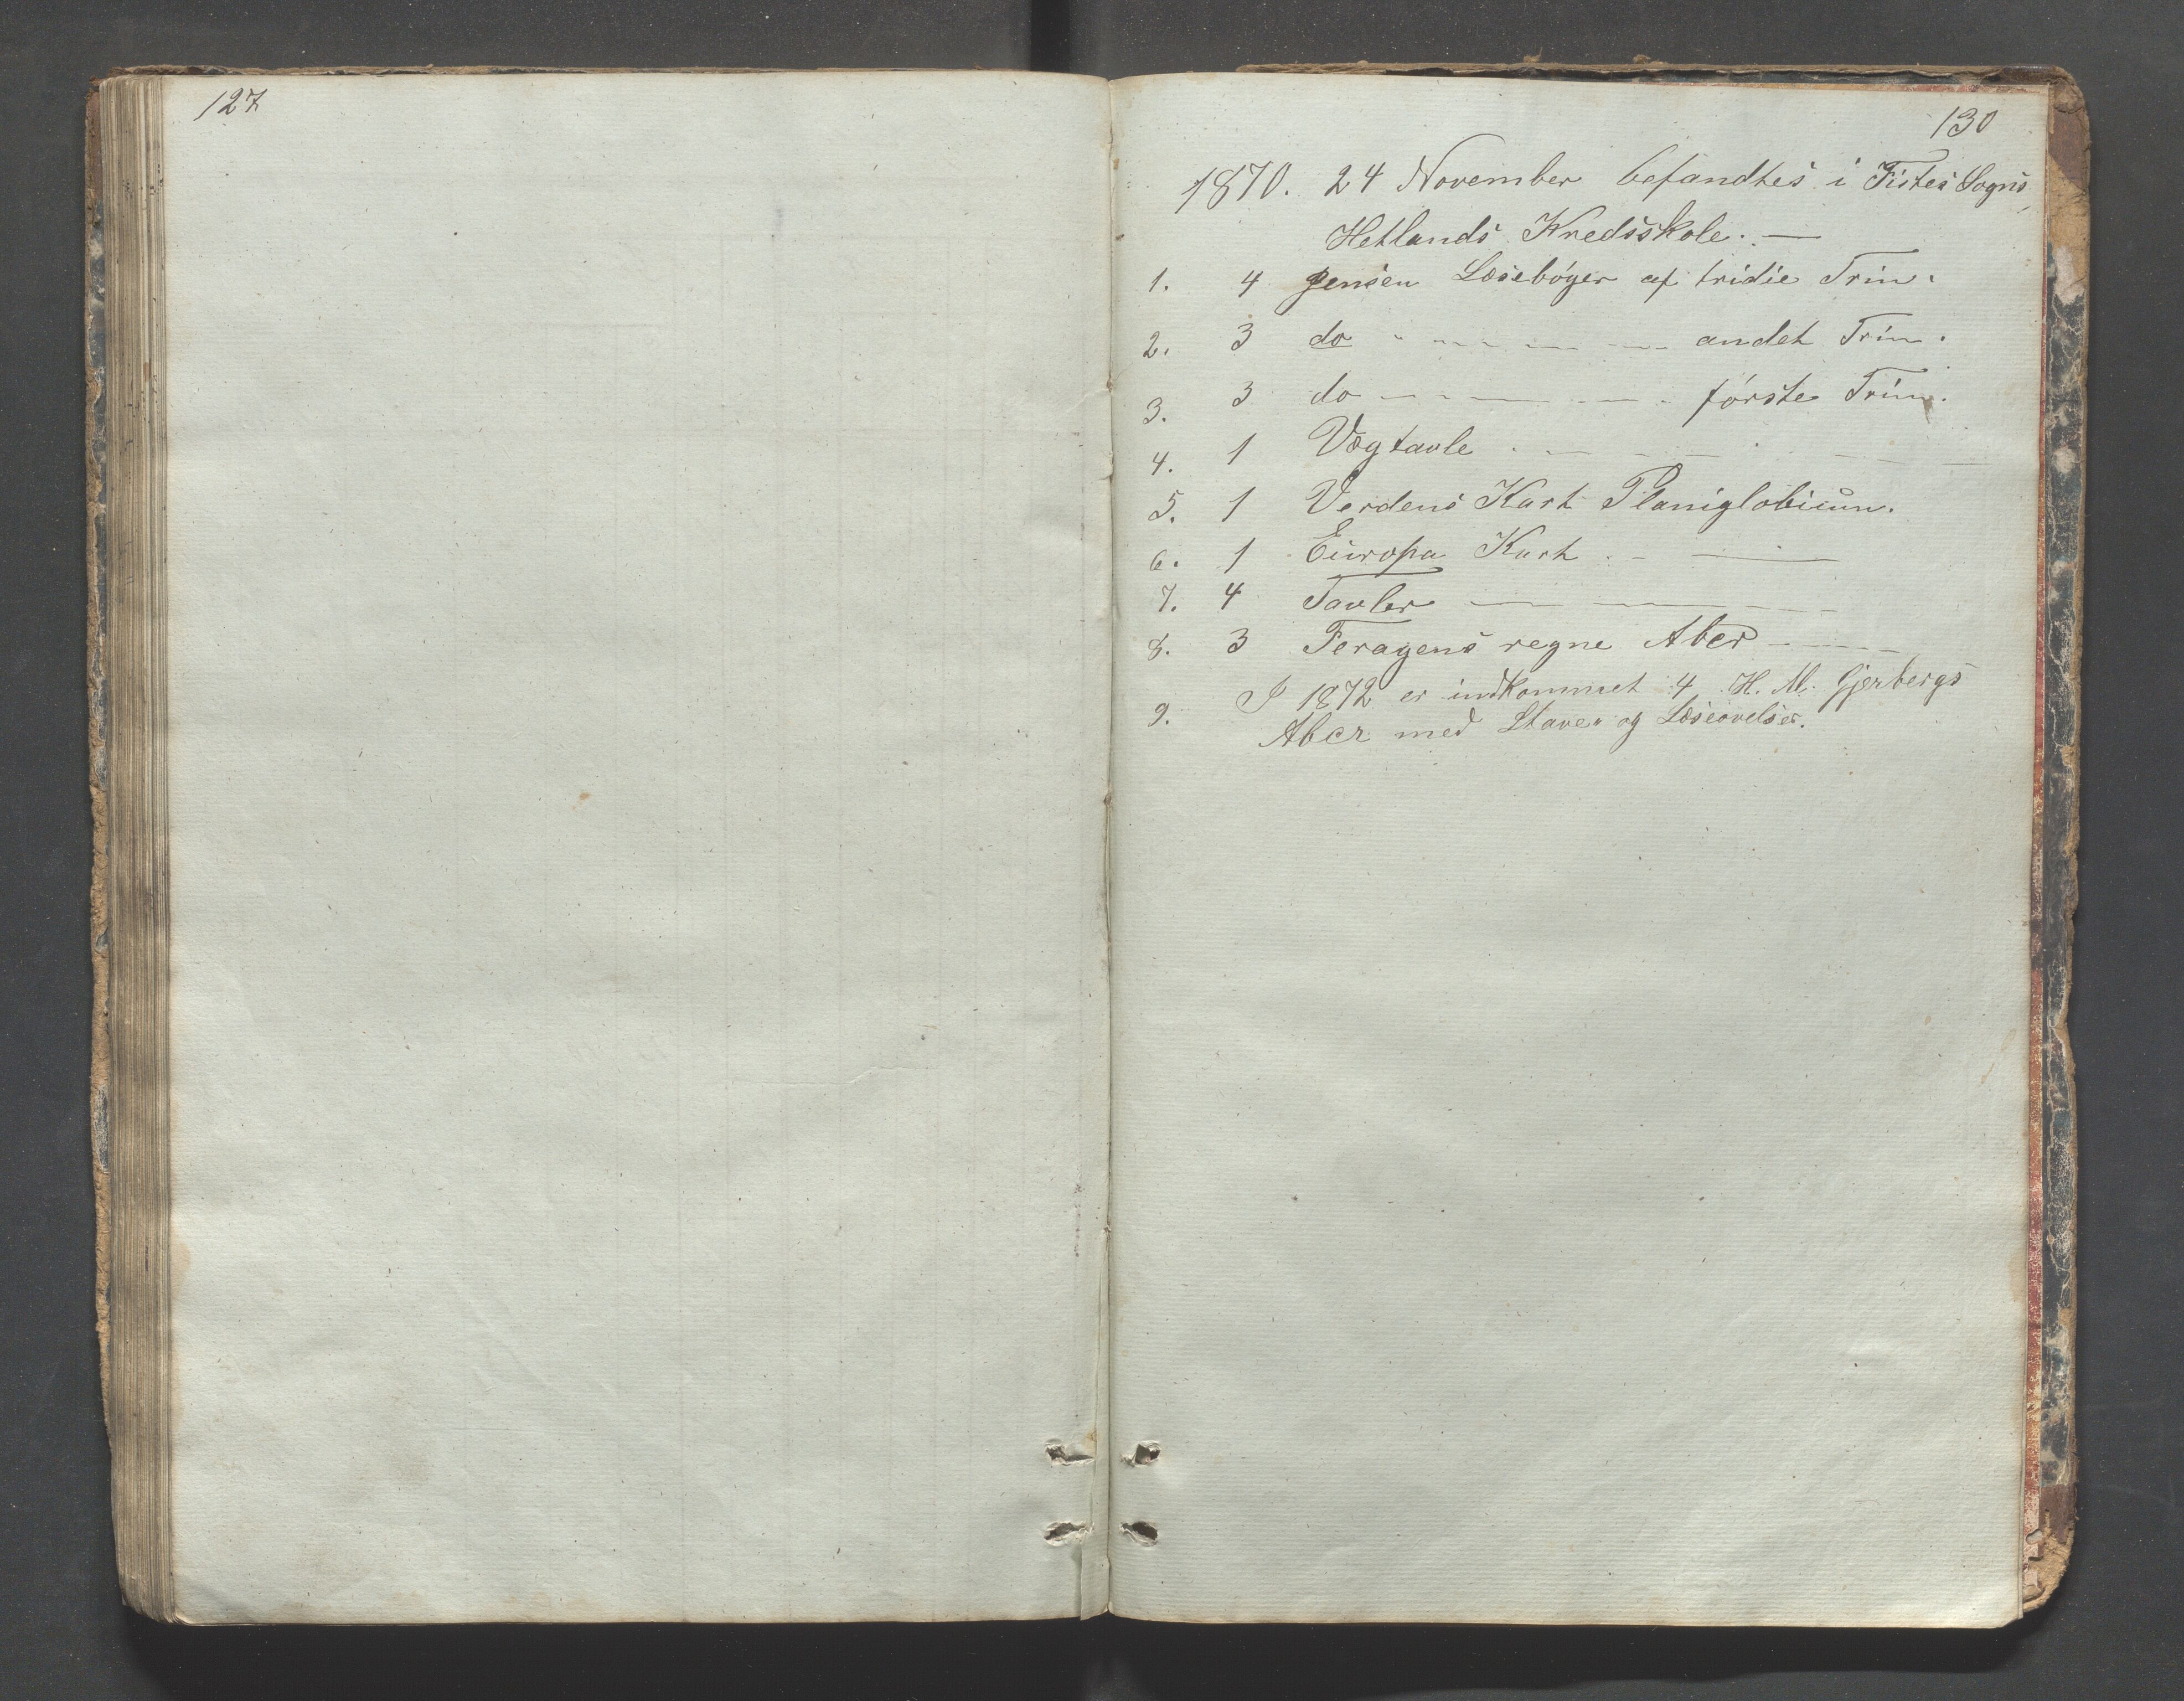 127
130
1870. 24 November befandtes i Fistes Sogns
Hetlands Kredsskole. —
1. 4 Jensen Læsebøger af tridie Trin.
2. 3 do - - - - - andet Trin.
3. 3 do - - - - - første Trin.
4. 1 Vægtavle . - - - -
5. 1 Verdens Kart Planiglobium.
6. 1 Europa Kart . - —
7. 4 Tavler — — - -
8. 3 Feragens regne Abcr - - - -
9. I 1872 er indkommet 4 H. M. Gjerbergs
Abcr med Stave- og Læseøvelser.